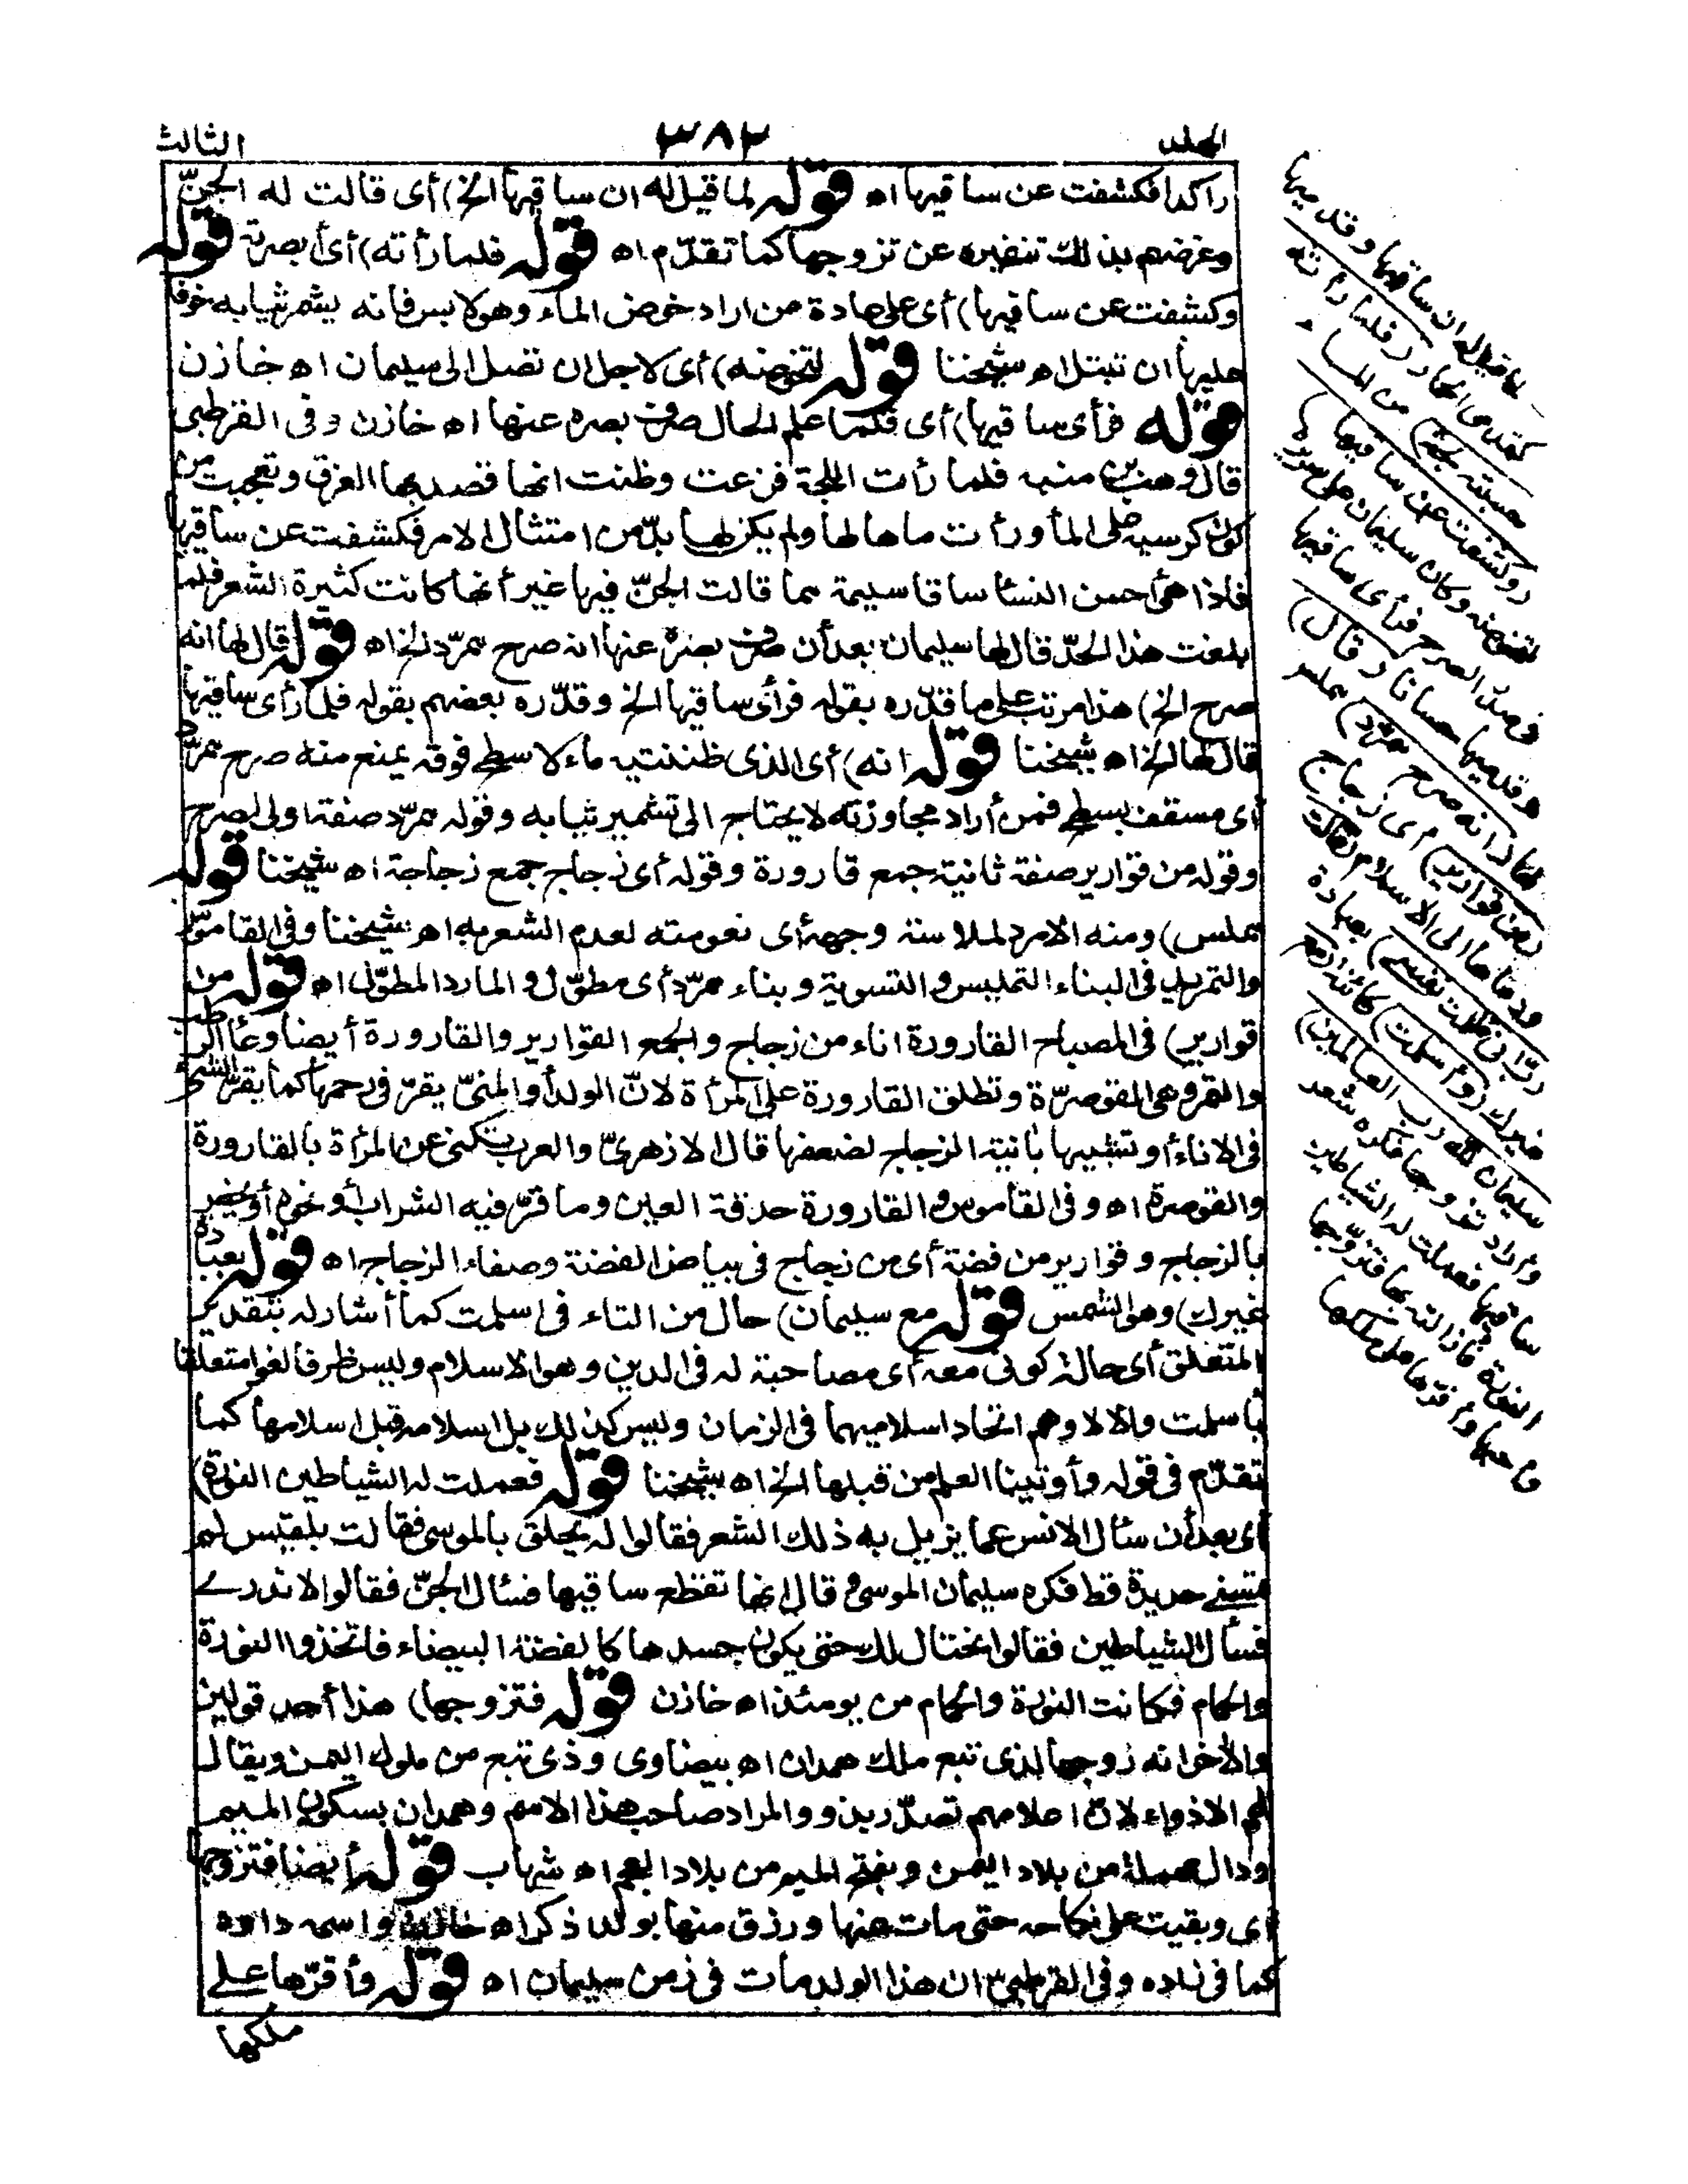 المجلد ٣٨٢ الثالث
راكدا فكشفت عن ساقيها اه قوله لما قيل له ان ساقيها الخ) أى قالت له الجنّ
وغرضهم بذلك تنفيره عن تزوجها كما تقدّم اه قوله فلما رأته) أى أبصرته قوله
وكشفت عن ساقيها) أى على عادة من اراد خوض الماء وهو لابس فانه يشمر ثيابه خوفا
عليها ان تبتل اه شيخنا قوله لتخوضه) أى لاجل ان تصل الى سليمان اه خازن
قوله فرأى ساقيها) أى فلما علم الحال صرف بصره عنها اه خازن وفى القرطبى
قال وهب بن منبه فلما رأت اللجة فزعت وظنت انها قصد بها الغرق وتعجبت من
كون كرسيه على الماء ورأت ما هالها ولم يكن لها بدّ من امتثال الامر فكشفت عن ساقيها
فاذا هى أحسن النساء ساقا سليمة مما قالت الجنّ فيها غير أنها كانت كثيرة الشعر فلما
بلغت هذا الحدّ قال لها سليمان بعد أن صرف بصره عنها انه صرح ممرّد الخ اه قوله قال لها انه
صرح الخ) هذا مرتب على ما قدّره بقوله فرأى ساقيها الخ وقدّره بعضهم بقوله فلما رأى ساقيها
قال لها الخ اه شيخنا قوله انه) أى الذى ظننتيه ماء لا سطح فوقه يمنع منه صرح ممرّد
أى مسقف بسطح فمن أراد مجاوزته لا يحتاج الى تشمير ثيابه وقوله ممرّد صفة اولى لصرح
وقوله من قوارير صفة ثانية جمع قارورة وقوله أى زجاج جمع زجاجة اه شيخنا قوله
مملس) ومنه الامرد لملاسة وجهه أى نعومته لعدم الشعر به اه شيخنا وفى القاموس
والتمريد فى البناء التمليس والتسوية وبناء ممرّد أى مطوّل والمارد المطوّل اه قوله من
قوارير) فى المصباح القارورة اناء من زجاج والجمع القوارير والقارورة أيضا وعاء الرطب
والتمر وهى القوصرّة وتطلق القارورة على المرأة لانّ الولد أو المنىّ يقرّ فى رحمها كما يقرّ الشئ
فى الاناء أو تشبيها بآنية الزجاج لضعفها قال الازهرىّ والعرب تكنى عن المرأة بالقارورة
والقوصرة اه وفى القاموس والقارورة حدقة العين وما قرّ فيه الشراب أو نحوه أو يخص
بالزجاج وقوارير من فضة أى من زجاج فى بياض الفضة وصفاء الزجاج اه قوله بعبادة
غيرك) وهو الشمس قوله مع سليمان) حال من التاء فى اسلمت كما أشار له بتقدير
المتعلق أى حالة كونى معه أى مصاحبة له فى الدين وهو الاسلام وليس ظرفا لغوا متعلقا
بأسلمت والا لاوهم اتحاد اسلاميهما فى الزمان وليس كذلك بل اسلامه قبل اسلامها كما
تقدّم فى قوله وأوتينا العلم من قبلها الخ اه شيخنا قوله فعملت له الشياطين النورة)
أى بعد أن سأل الانس عما يزيل به ذلك الشعر فقالوا له يحلق بالموسى فقالت بلقيس لم
تمسنى حديدة قط فكره سليمان الموسى وقال انها تقطع ساقيها فسأل الجنّ فقالوا لا ندرى
فسأل الشياطين فقالوا نحتال لك حتى يكون جسدها كالفضة البيضاء فاتخذوا النورة
والحمام فكانت النورة والحمام من يومئذ اه خازن قوله فتزوجها) هذا أحد قولين
والآخر انه زوجها لذى تبع ملك همدان اه بيضاوى وذى تبع من ملوك اليمن ويقال
لهم الاذواء لانّ اعلامهم تصدّر بذو والمراد صاحب هذا الاسم وهمدان بسكون الميم
ودال مهملة من بلاد اليمن وبفتح الميم من بلاد العجم اه شهاب قوله أيضا فتزوجها
أى وبقيت على نكاحه حتى مات عنها ورزق منها بولد ذكر اه خازن واسمه داود
كما فى زاده وفى القرطبىّ ان هذا الولد مات فى زمن سليمان اه قوله وأقرّها على
ملكها
لما قيل له ان ساقيها وقدميها
كقدمى الحمار (فلما رأته
حسبته لجة) من الماء
(وكشفت عن ساقيها)
لتخوضه وكان سليمان على سريره
فى صدر الصرح فرأى ساقيها
وقدميها حسانا (قال)
لها (انه صرح ممرّد) مملس
(من قوارير) أى زجاج
ودعاها الى الاسلام (قالت
ربّ انى ظلمت نفسى) بعبادة
غيرك (وأسلمت) كائنة (مع
سليمان لله رب العالمين)
وأراد تزوجها فكره شعر
ساقيها فعملت له الشياطين
النورة فأزالته بها فتزوّجها
وأحبها وأقرّها على ملكها